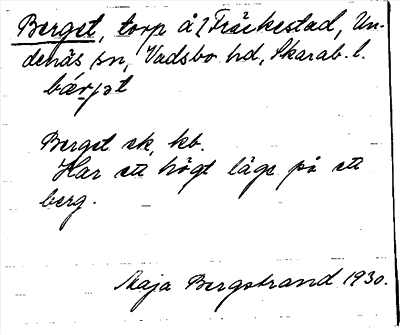 Berget, torp å Fräckestad, Un-
denäs sn, Vadsbo hd, Skarab. l.
bárjat
Berget ek. kb.
Har ett högt läge på ett
berg.
Maja Bergstrand 1930.